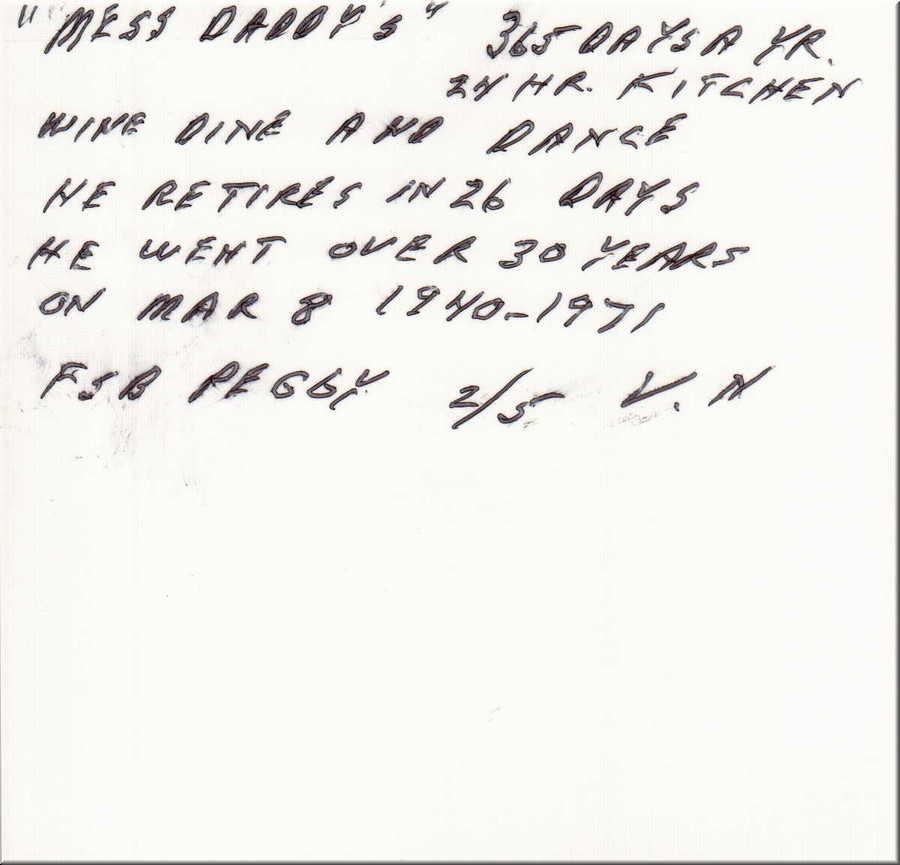 "MESS DADDY'S" 365 DAYS A YR.
24 HR. KITCHEN
WINE DINE AND DANCE
HE RETIRES IN 26 DAYS
HE WENT OVER 30 YEARS
ON MAR 8 1940-1971
FSB PEGGY 2/5 V.N